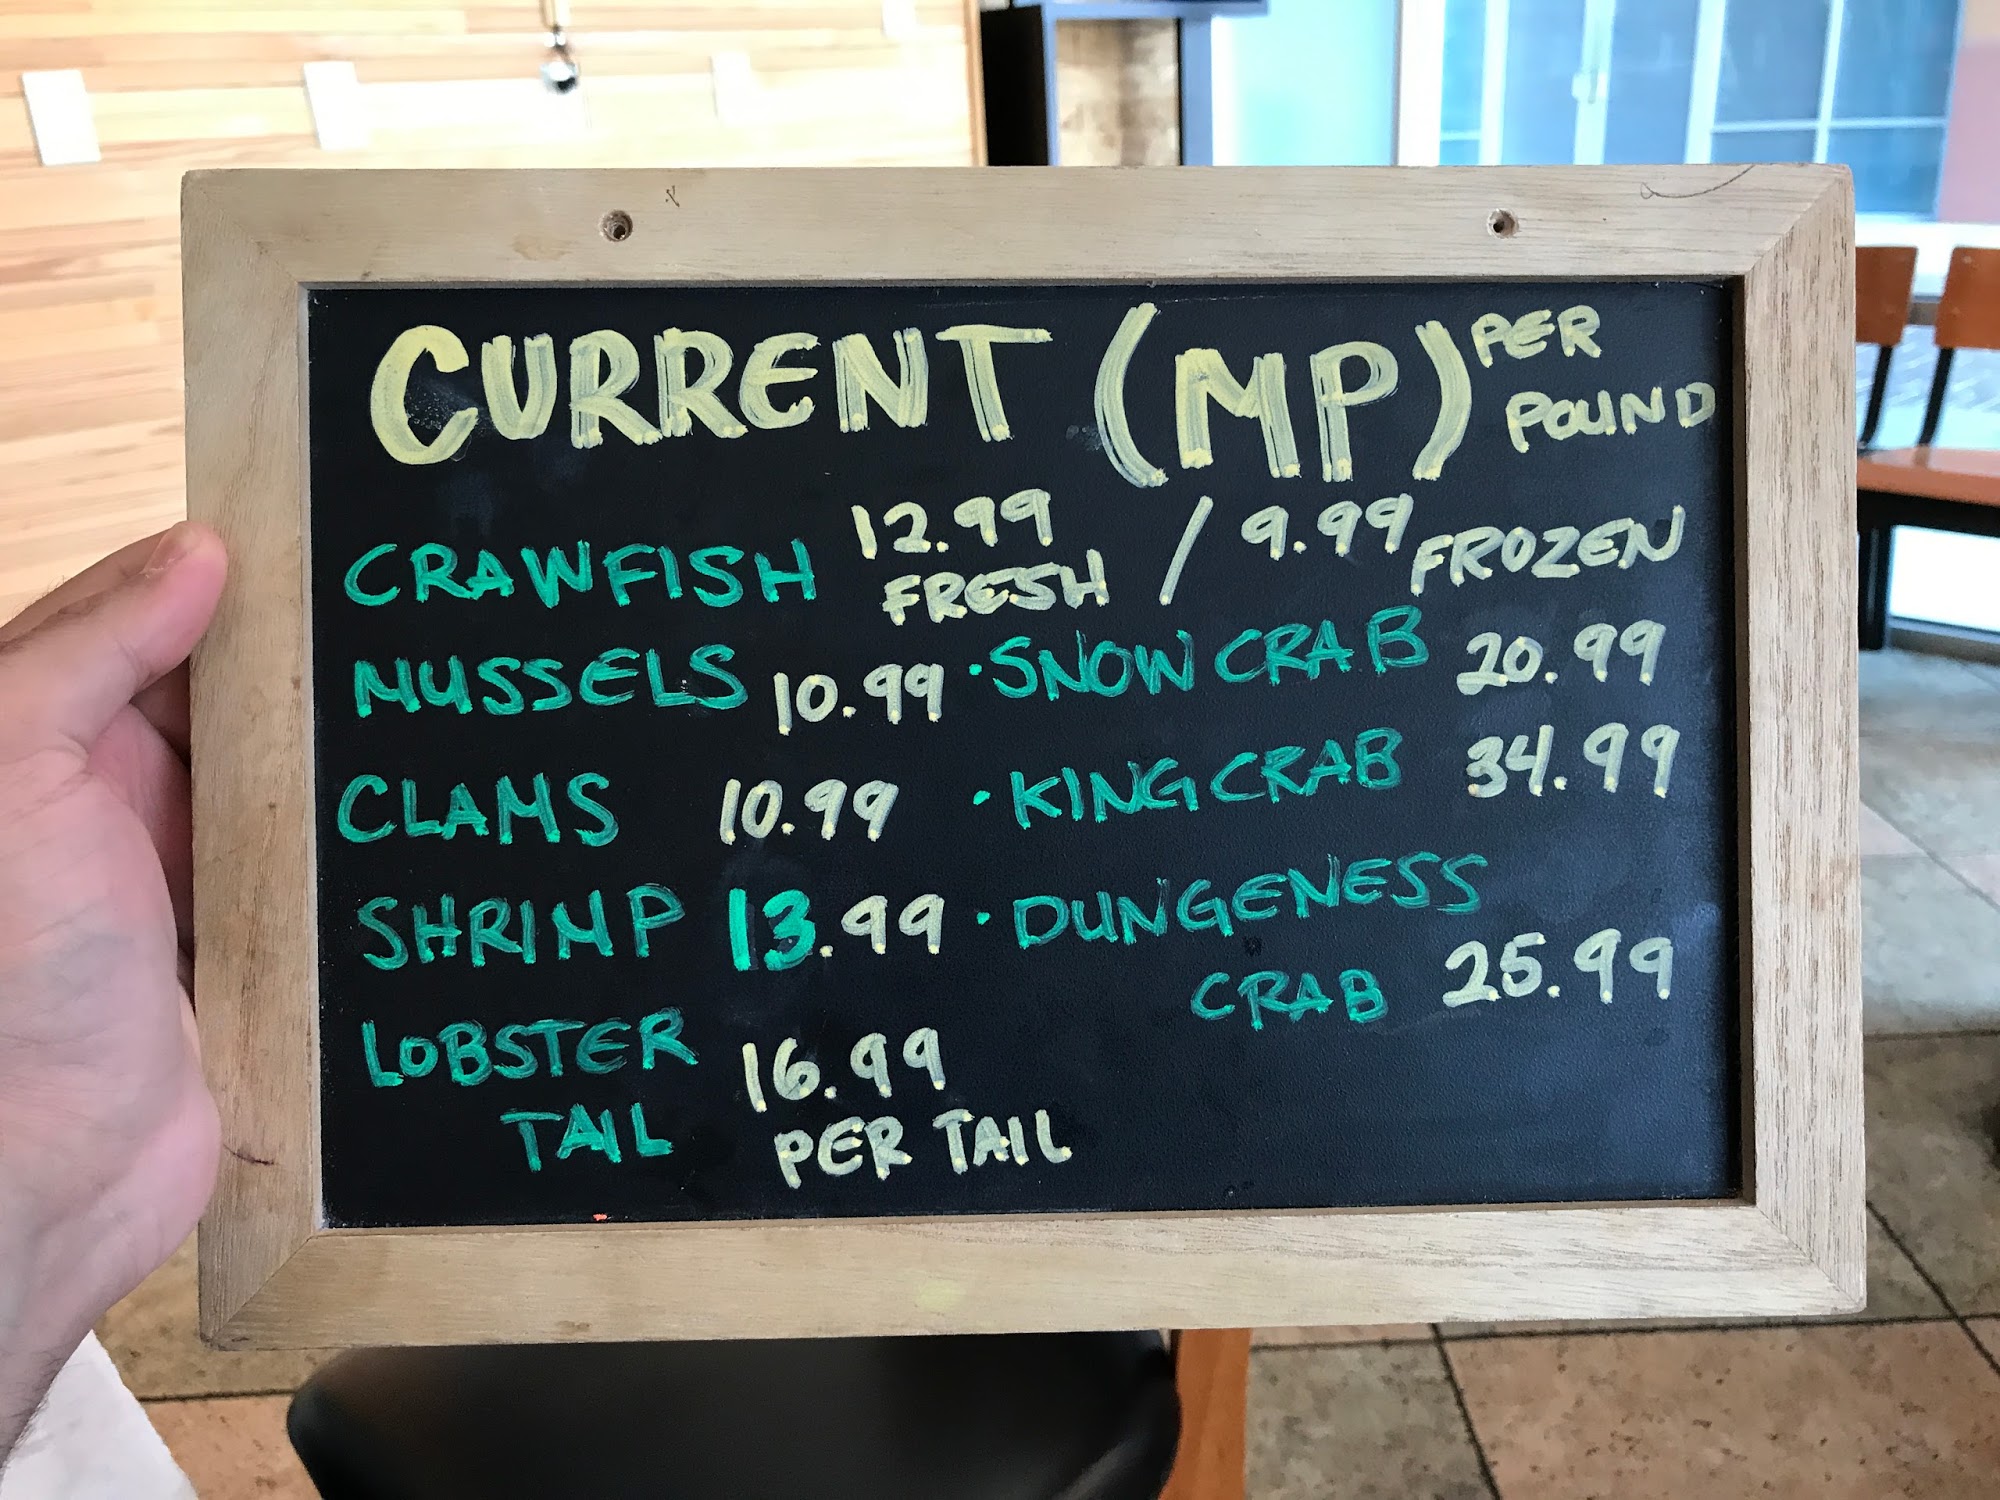 CURRENT (MP) PER POUND
CRAWFISH 12.99 FRESH / 9.99 FROZEN
MUSSELS 10.99 • SNOW CRAB 20.99
CLAMS 10.99 • KING CRAB 34.99
SHRIMP 13.99 • DUNGENESS
CRAB 25.99
LOBSTER 16.99
TAIL PER TAIL